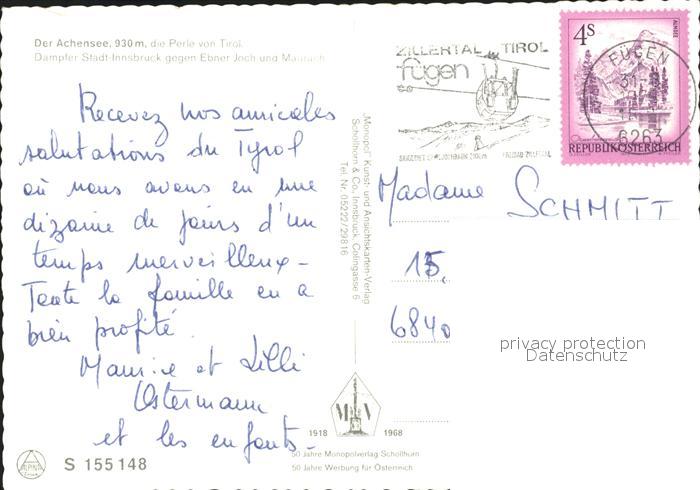 Der Achensee, 930 m, die Perle von Tirol.
Dampfer Stadt-Innsbruck gegen Ebner Joch und Maurach
Recevez nos amicales
salutations du Tyrol
où nous avons eu une
dizaine de jours d'un
temps merveilleux -
Toute la famille en a
bien profité.
Maurice et Lilli
Ostermann
et les enfants -
S 155148
Monopol Kunst- und Ansichtskarten-Verlag
Schöllhorn & Co., Innsbruck, Colingasse 6
Tel. Nr. 05222/29816
1918 1968
50 Jahre Monopolverlag Schöllhorn
50 Jahre Werbung für Österreich
ZILLERTAL TIROL
fügen
4S
ALMSEE
REPUBLIK ÖSTERREICH
FÜGEN
6263
Madame SCHMITT
15,
6840
privacy protection
Datenschutz